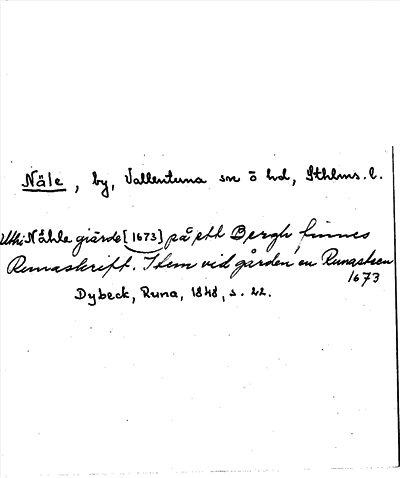 Näle, by, Vallentuna sn ö hd, Sthlms. l.
Uthi Nähle giärde [1673] på ett Bergh, finnes
Runaskrift. Item vid gården en Runasteen
1673
Dybeck, Runa, 1848, s. 22.